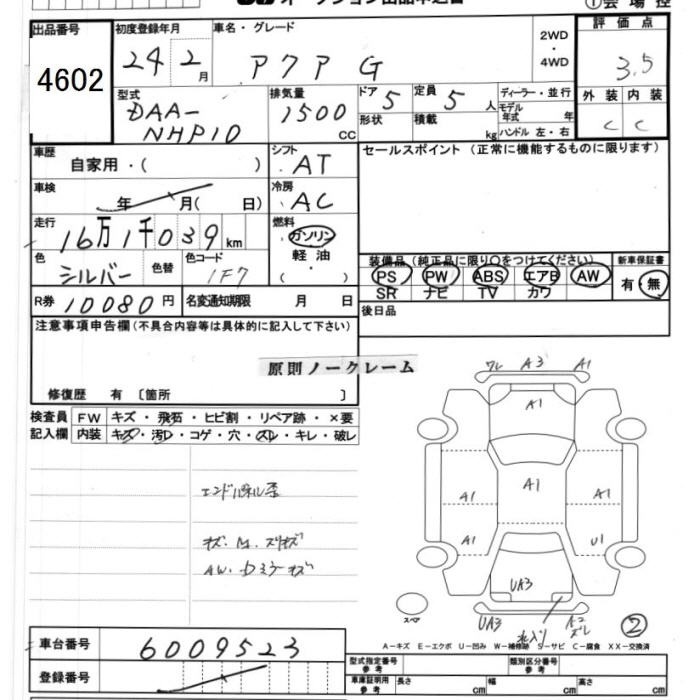 出品番号 4602
初度登録年月 24年 2月
車名・グレード アクア G
2WD・4WD
評価点 3.5
外装 C 内装 C
型式 DAA-NHP10
排気量 1500 CC
ドア 5 形状
定員 5 人 積載 kg
ディーラー・並行
モデル年式 年式
ハンドル 左・右
車歴 自家用・( )
シフト AT
セールスポイント (正常に機能するものに限ります)
車検 年 月( 日)
冷房 AC
走行 16万1千039km
燃料 ガソリン 軽油 ・( )
色 シルバー 色替 色コード 1F7
装備品(純正品に限り〇をつけてください) 新車保証書
PS PW ABS エアB AW 有・無
SR ナビ TV カワ
R券 10080円 名変通知期限 月 日
後日品
注意事項申告欄(不具合内容等は具体的に記入して下さい)
原則ノークレーム
修復歴 有 〔箇所 〕
検査員記入欄 FW キズ・飛石・ヒビ割・リペア跡・×要
内装 キズ・汚レ・コゲ・穴・スレ・キレ・破レ
ワレ A3 A1
A1
A1 A1 A1
A1 U1
UA3
UA3 A2
スペア
②
A-キズ E-エクボ U-凹み W-補修跡 S-サビ C-腐食 XX-交換済
車台番号 6009523
登録番号
型式指定番号 参考 類別区分番号 参考
車庫証明用 参考 長さ cm 幅 cm 高さ cm